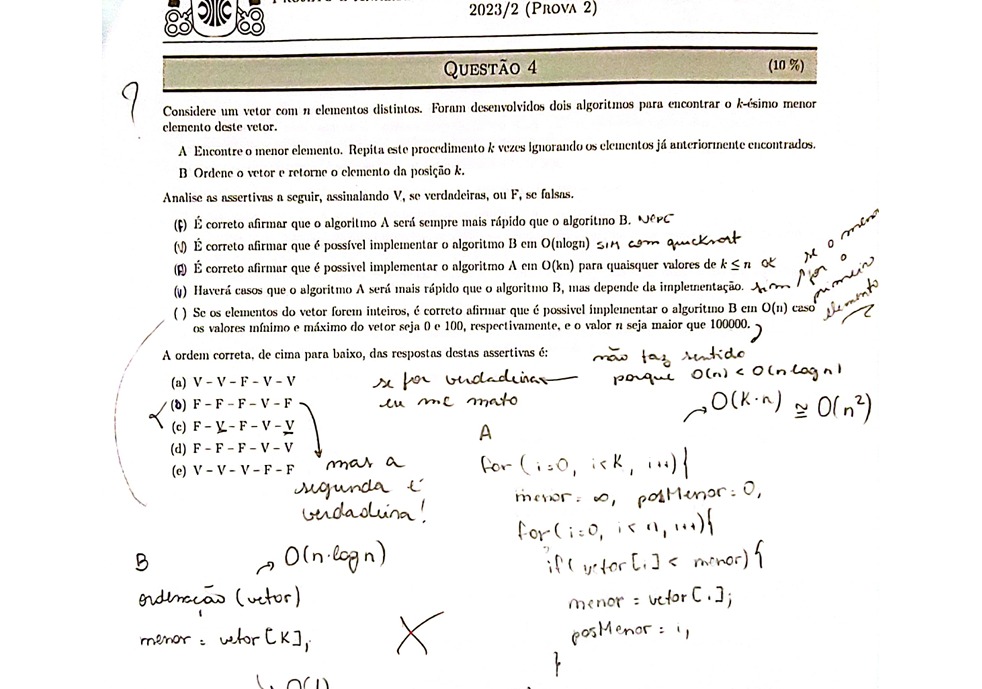 2023/2 (PROVA 2)
QUESTÃO 4 (10 %)
?
Considere um vetor com n elementos distintos. Foram desenvolvidos dois algoritmos para encontrar o k-ésimo menor
elemento deste vetor.
A Encontre o menor elemento. Repita este procedimento k vezes ignorando os elementos já anteriormente encontrados.
B Ordene o vetor e retorne o elemento da posição k.
Analise as assertivas a seguir, assinalando V, se verdadeiras, ou F, se falsas.
(F) É correto afirmar que o algoritmo A será sempre mais rápido que o algoritmo B. NOPE
(V) É correto afirmar que é possível implementar o algoritmo B em O(nlogn) SIM com quicksort
( ) É correto afirmar que é possivel implementar o algoritmo A em O(kn) para quaisquer valores de k ≤ n ok
(V) Haverá casos que o algoritmo A será mais rápido que o algoritmo B, mas depende da implementação. sim, se o menor for o primeiro elemento
( ) Se os elementos do vetor forem inteiros, é correto afirmar que é possivel implementar o algoritmo B em O(n) caso
os valores mínimo e máximo do vetor seja 0 e 100, respectivamente, e o valor n seja maior que 100000.
A ordem correta, de cima para baixo, das respostas destas assertivas é:
não faz sentido
porque O(n) < O(n log n)
(a) V – V – F – V – V
(b) F – F – F – V – F
(c) F – V – F – V – V
(d) F – F – F – V – V
(e) V – V – V – F – F
se for verdadeira
eu me mato
O(K·n) ≅ O(n²)
mas a
segunda é
verdadeira!
A
for (i=0, i<K, i++){
menor = ∞, posMenor = 0,
for (i=0, i<n, i++){
if (vetor[i] < menor){
menor = vetor[i];
posMenor = i,
}
B
O(n·logn)
ordenação (vetor)
menor = vetor[K],
O(1)